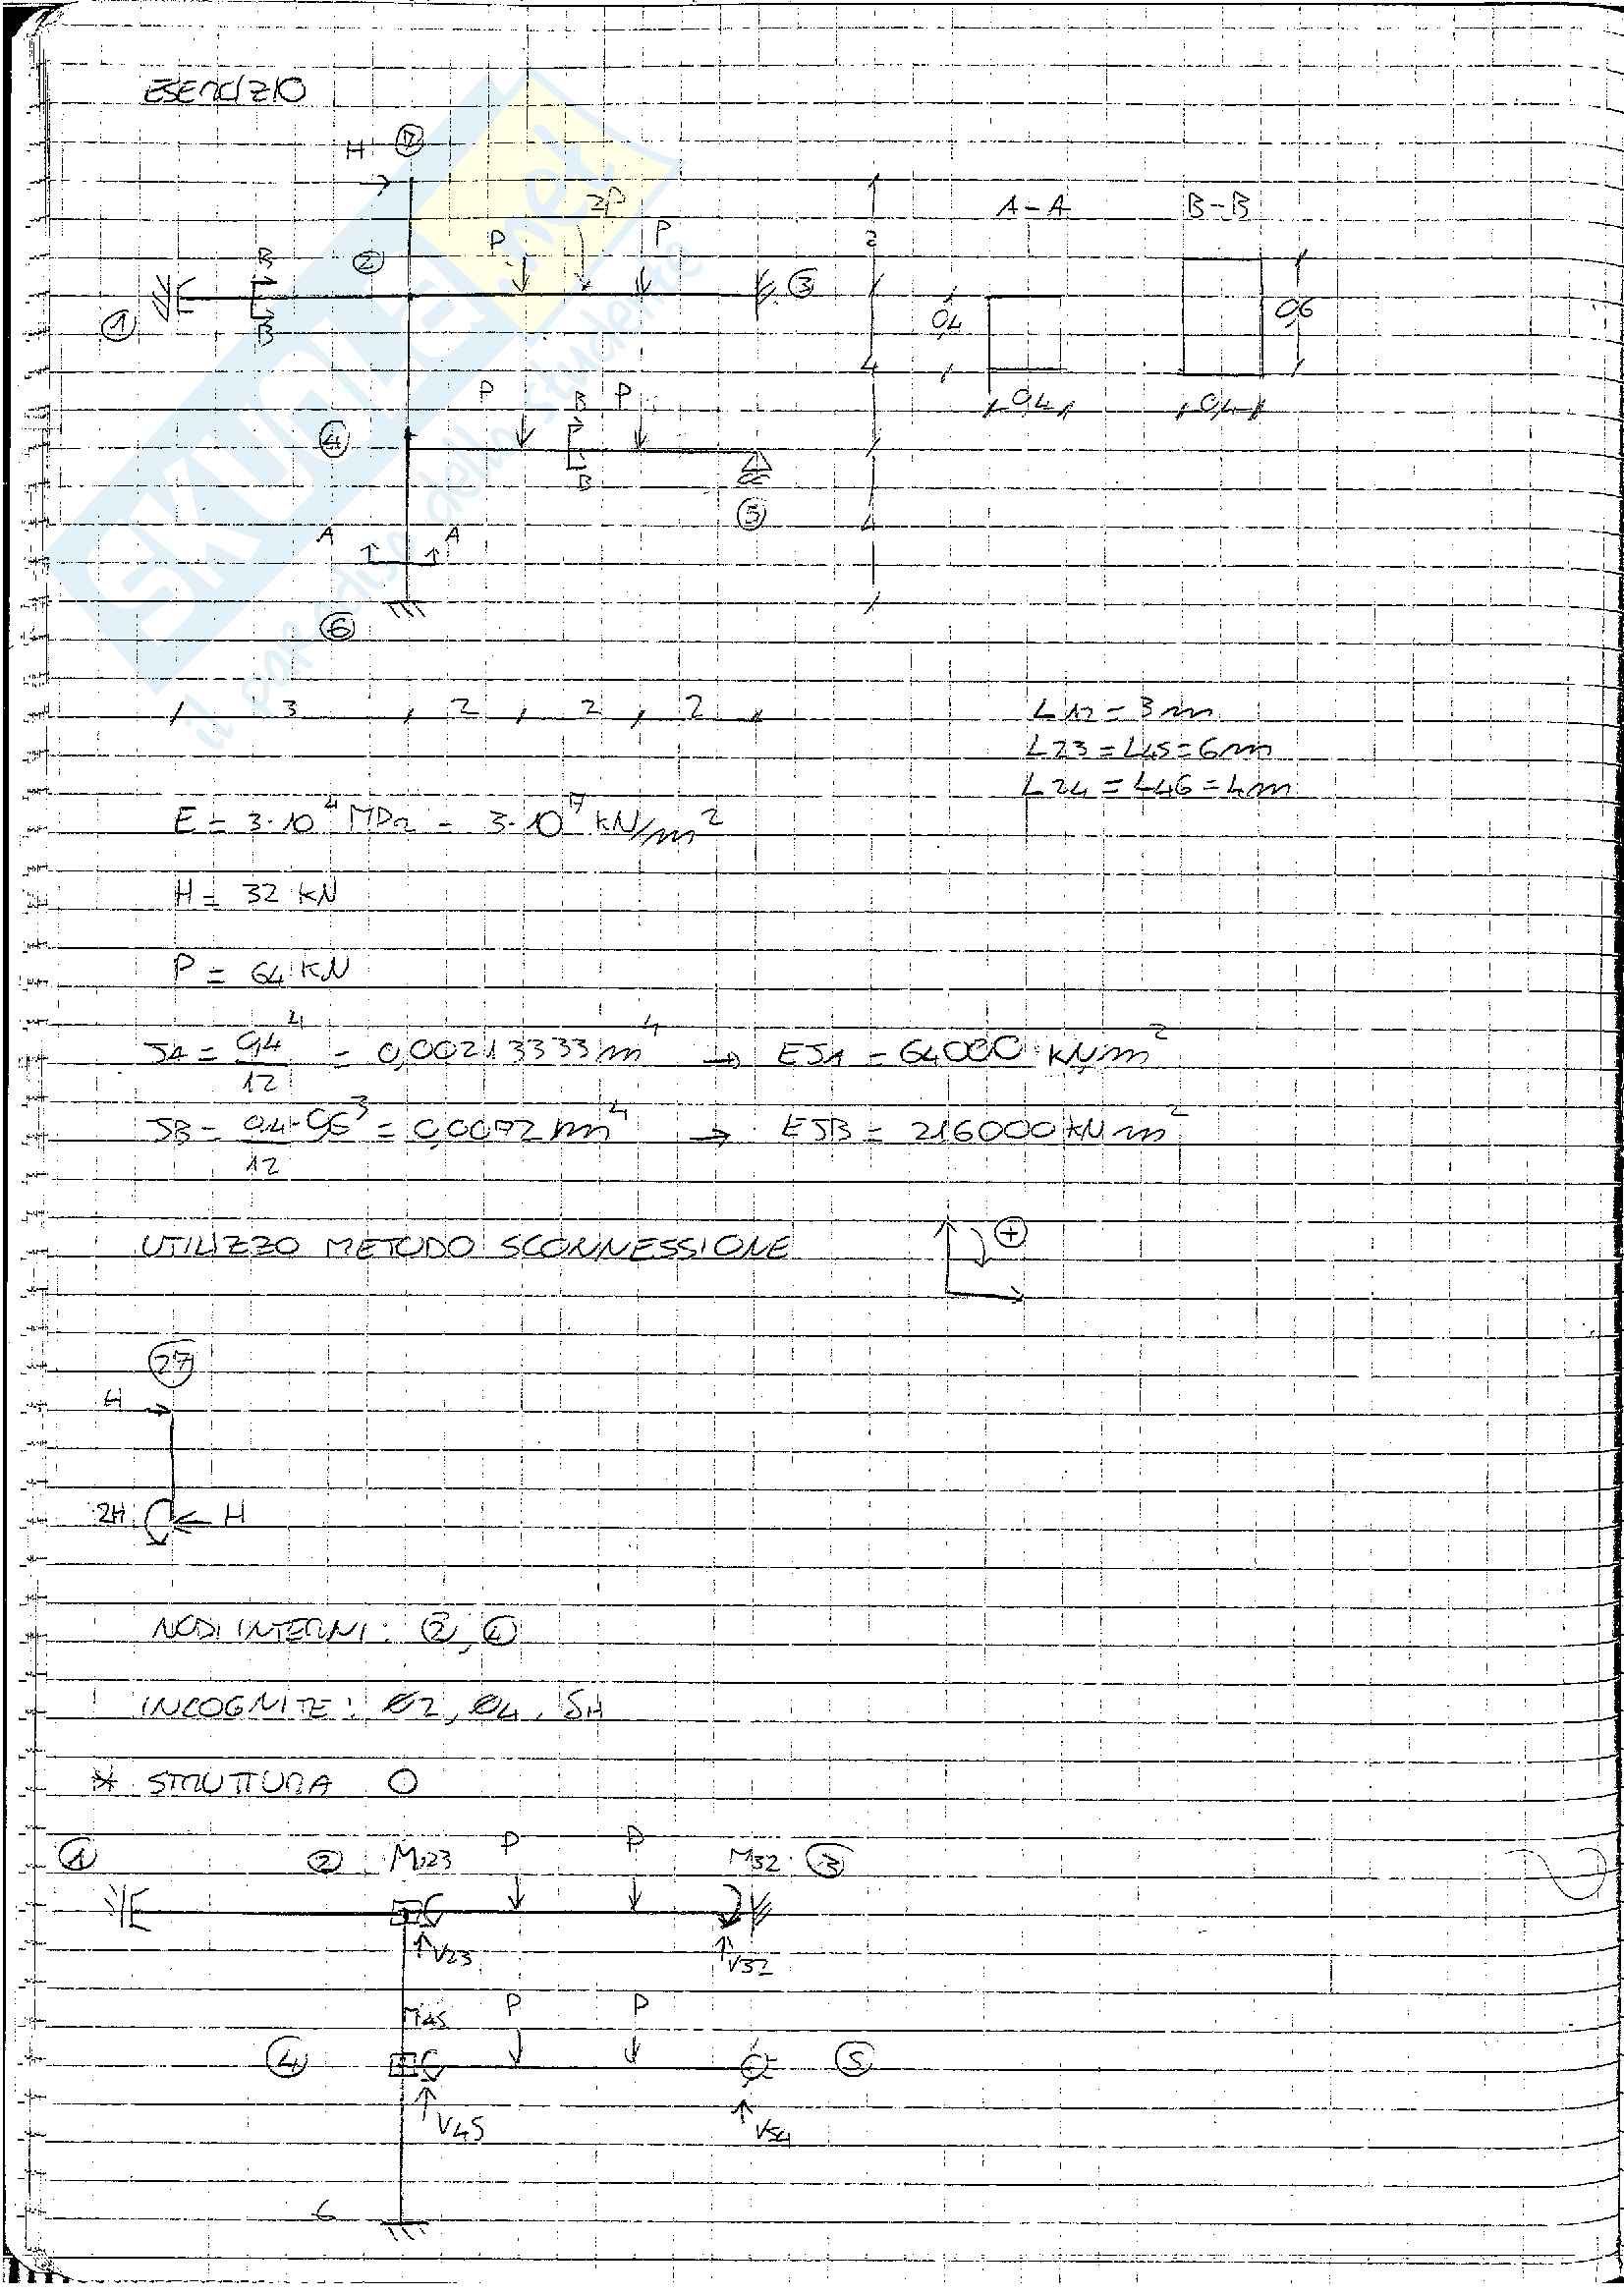 ESERCIZIO
H 7
2P
P P
A-A B-B
B 2
3
2
1
B
0,4
0,6
4
P B P
0,4 0,4
4
B
5
A A
4
6
3 2 2 2
L12 = 3m
L23 = L45 = 6m
L24 = L46 = 4m
E = 3·10⁴ MPa = 3·10⁷ kN/m²
H = 32 KN
P = 64 KN
JA = 0,4⁴/12 = 0,00213333 m⁴ → EJA = 64000 kNm²
JB = 0,4·0,6³/12 = 0,0072 m⁴ → EJB = 216000 kNm²
UTILIZZO METODO SCONNESSIONE +
27
H
2H H
NODI INTERNI: 2, 4
INCOGNITE: θ2, θ4, δH
* STRUTTURA 0
1 2 M23 P P M32 3
V23 V32
M45 P P
4 5
V45 V54
6
SKUOLA.net
il paradiso dello studente